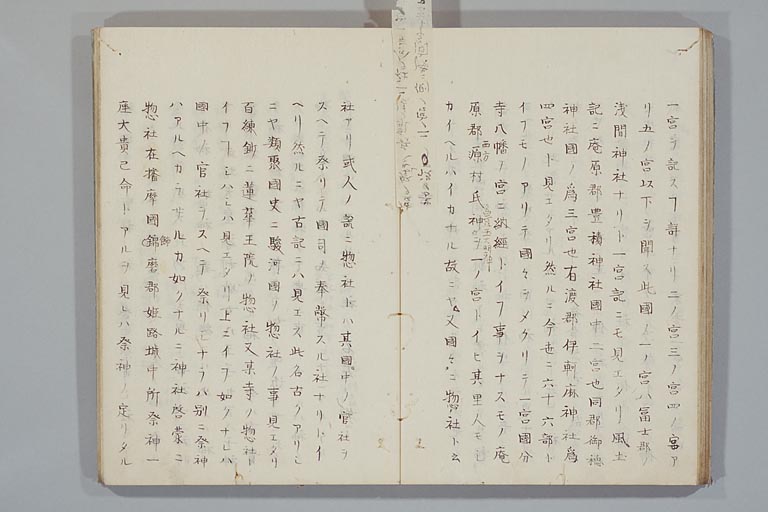 一宮ヲ記スノ計ナリ二ノ宮三ノ宮四ノ宮ア
リ五ノ宮以下ヲ聞ス此國ノ一ノ宮ハ冨士郡
浅間神社ナリト一宮記ニモ見エタリ風土
記ニ庵原郡豊積神社國中二宮也同郡御穂
神社國ノ為三宮也有渡郡伊軻麻神社為
四宮也ト見エタリ然ルニ今世ニ六十六部ト
イフモノアリテ國々ヲメクリテ一宮國分
寺八幡ヲ宮ニ納經トイフ事ヲナスモノ庵
原郡西方原村氏神ヲ一ノ宮トイヒ其里人モシ
カイヘルハイカナル故ニヤ又國々ニ惣社ト云
社アリ或人ノ説ニ惣社トハ其國中ノ官社ヲ
スヘテ祭リテ國司ノ奉幣スル社ナリトイ
ヘリ然ルニヤ古記ニハ見エス此名古クアリシ
ニヤ類聚國史ニ駿河國ノ惣社ノ事見エタリ
百練鈔ニ蓮華王院ノ惣社又某寺ノ惣社ト
イフコレハ見エタリ上ニイフ如クナレハ
國中ノ官社ヲスヘテ祭リシナラハ別ニ祭神
ハアルヘカラサルカ如クナルニ神社啓蒙ニ
惣社在播摩國錺磨郡姫路城中所祭神一
座大貴己命トアルヲ見レハ祭神ノ定リタル